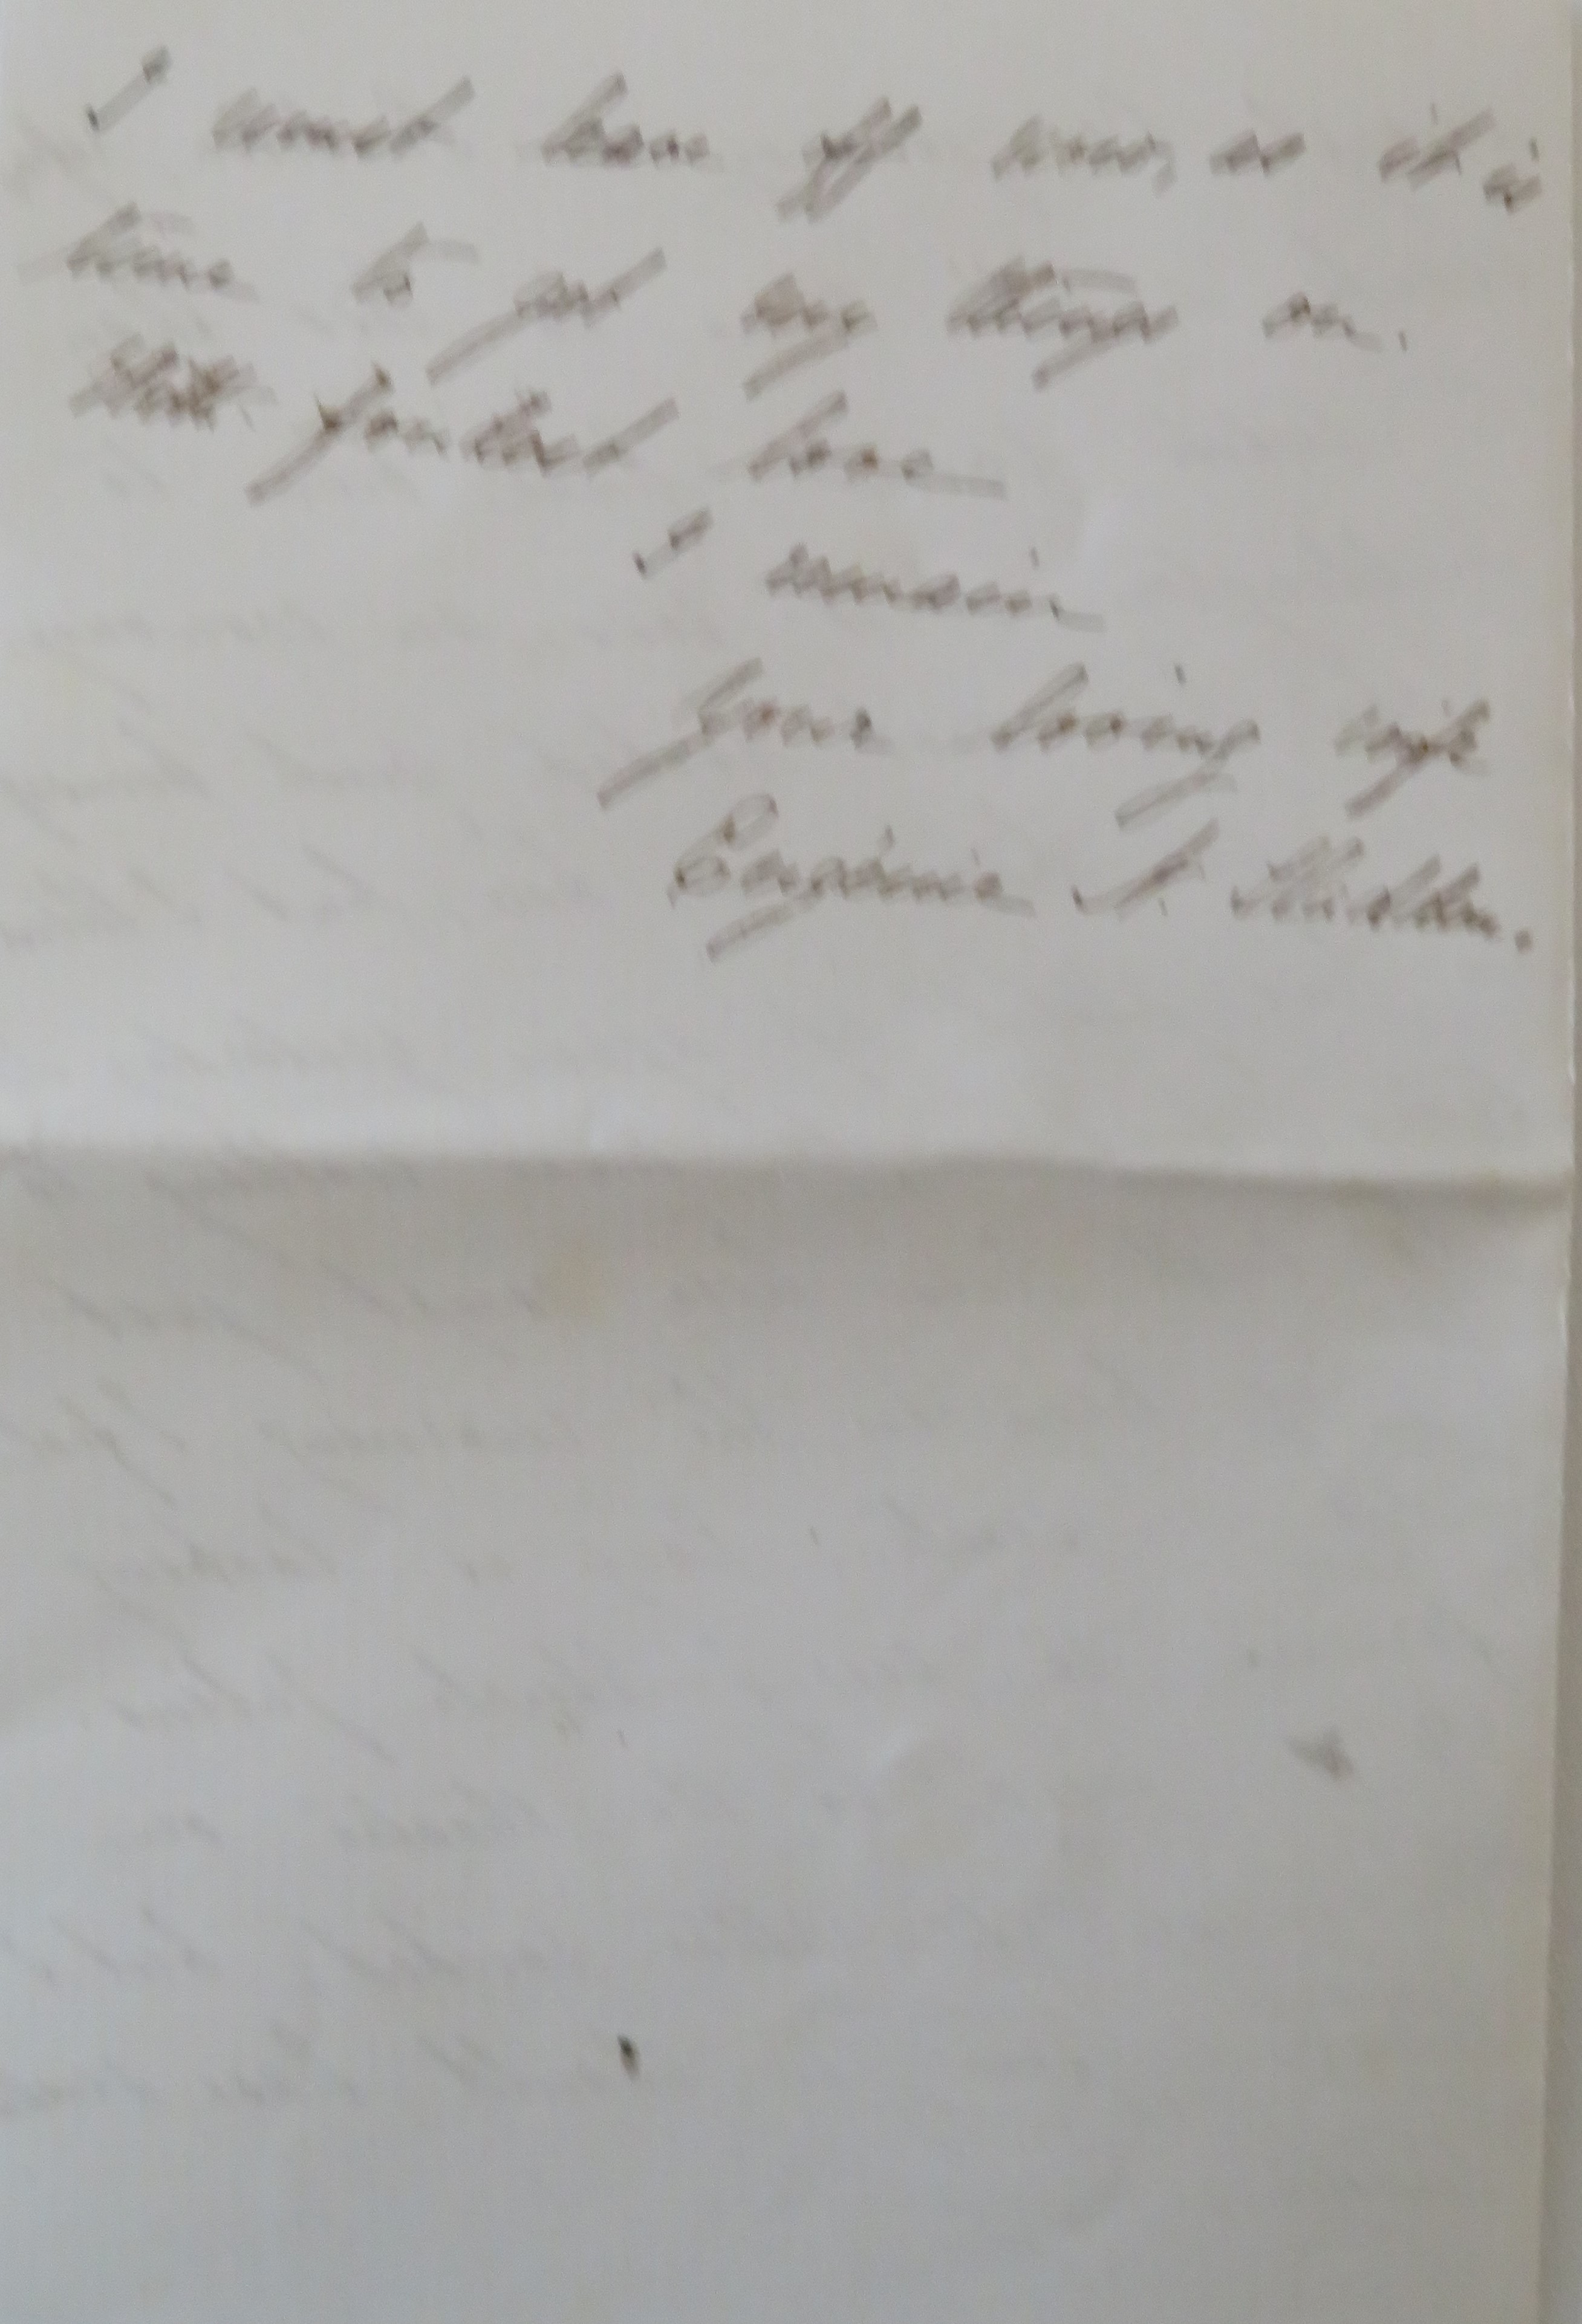 I must leave off now, as it is
time to get my things on.
With fondest love
I remain
Your loving wife
Eugénie